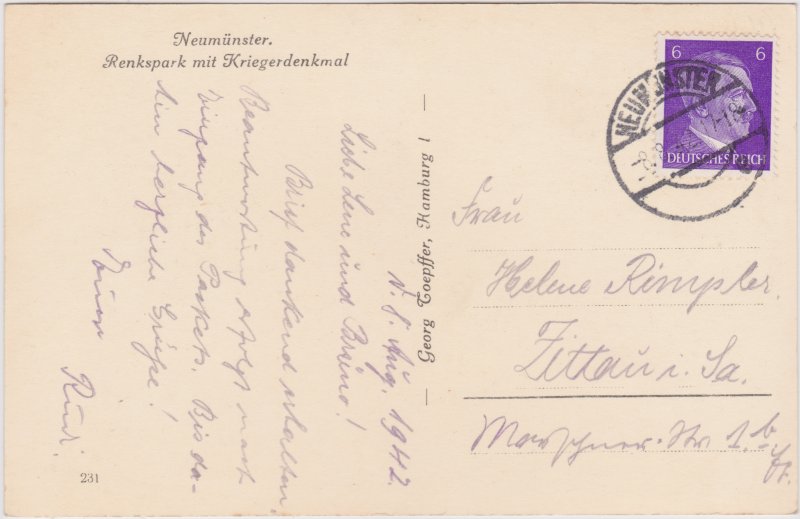 Neumünster.
Renkspark mit Kriegerdenkmal
N. 8. Aug. 1942.
Liebe Lene und Bruno!
Brief dankend erhalten.
Beantwortung erfolgt nach
Eingang des Pakets. Bis da-
hin herzliche Grüße!
Euer
Rudi.
231
Georg Toepffer, Hamburg 1
6 6
DEUTSCHES REICH
NEUMÜNSTER
Frau
Helene Rimpler
Zittau i. Sa.
Marschner-Str. 1.